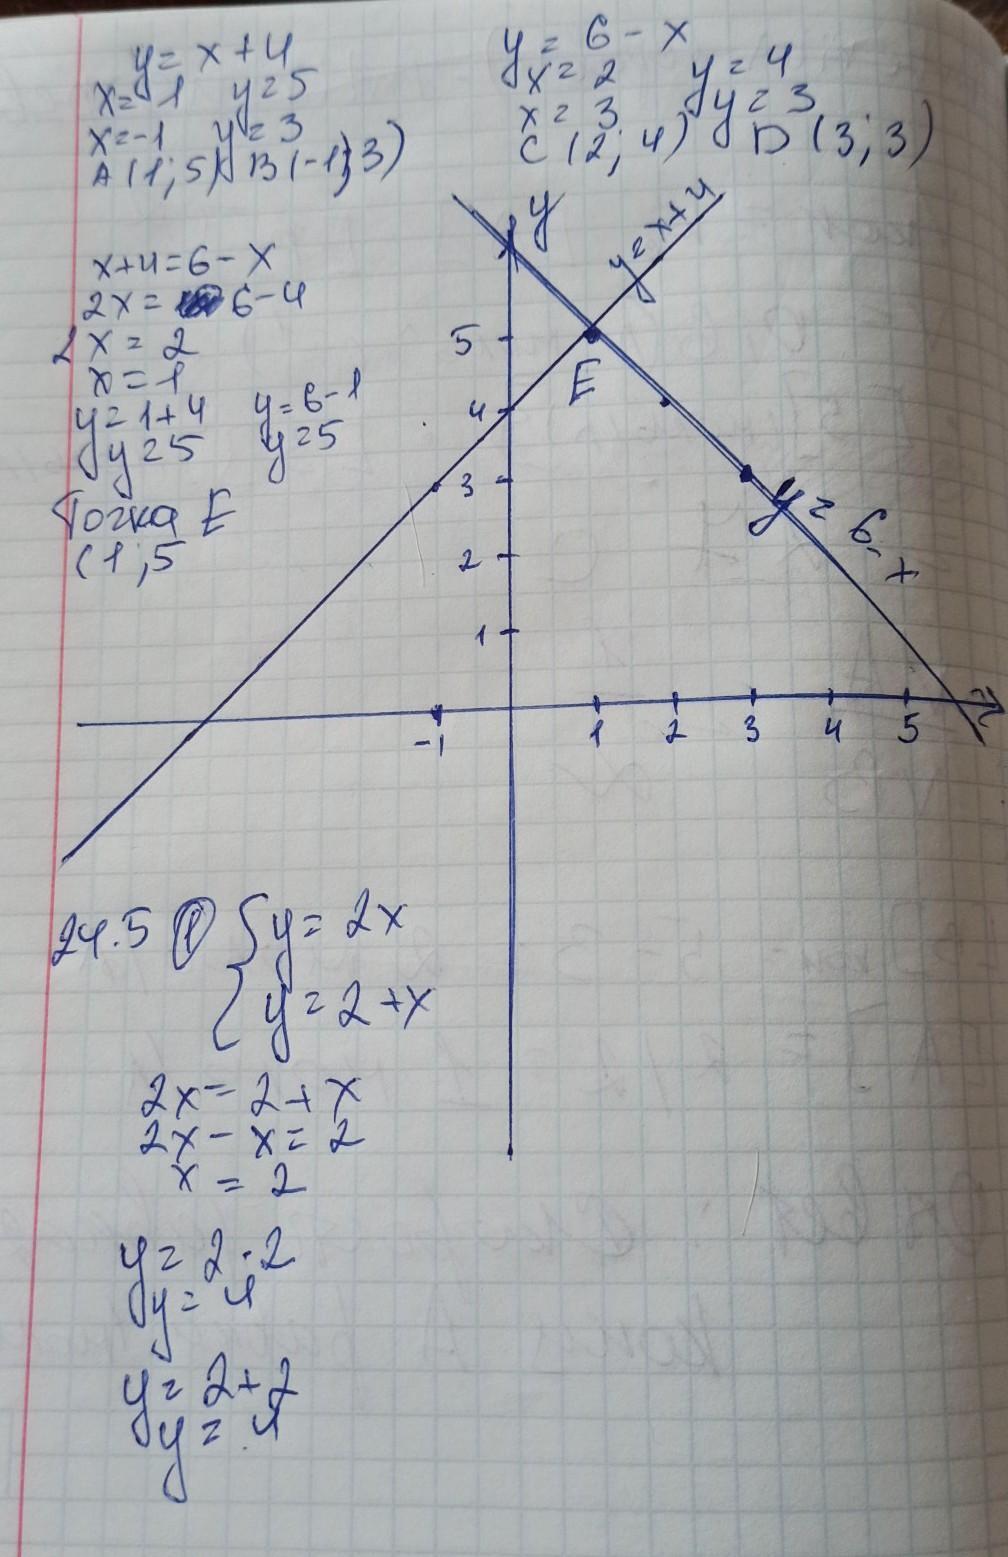 y = x + 4
x = 1 y = 5
x = -1 y = 3
A (1; 5) B (-1; 3)
y = 6 - x
x = 2 y = 4
x = 3 y = 3
C (2; 4) D (3; 3)
x + 4 = 6 - x
2x = 6 - 4
2x = 2
x = 1
y = 1 + 4 y = 6 - 1
y = 5 y = 5
Точка E
(1; 5
y
y = x + 4
5
E
4
3
y = 6 - x
2
1
-1 1 2 3 4 5
x
24.5 ① { y = 2x
y = 2 + x
2x = 2 + x
2x - x = 2
x = 2
y = 2 · 2
y = 4
y = 2 + 2
y = 4